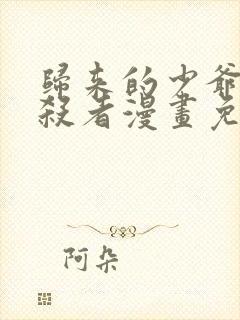 歸來的少爺
殺者漫畫免
阿朵